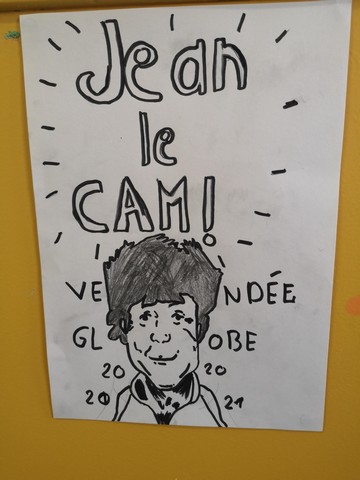 Jean
le
CAM!
VENDÉE
GLOBE
20 20
20 21